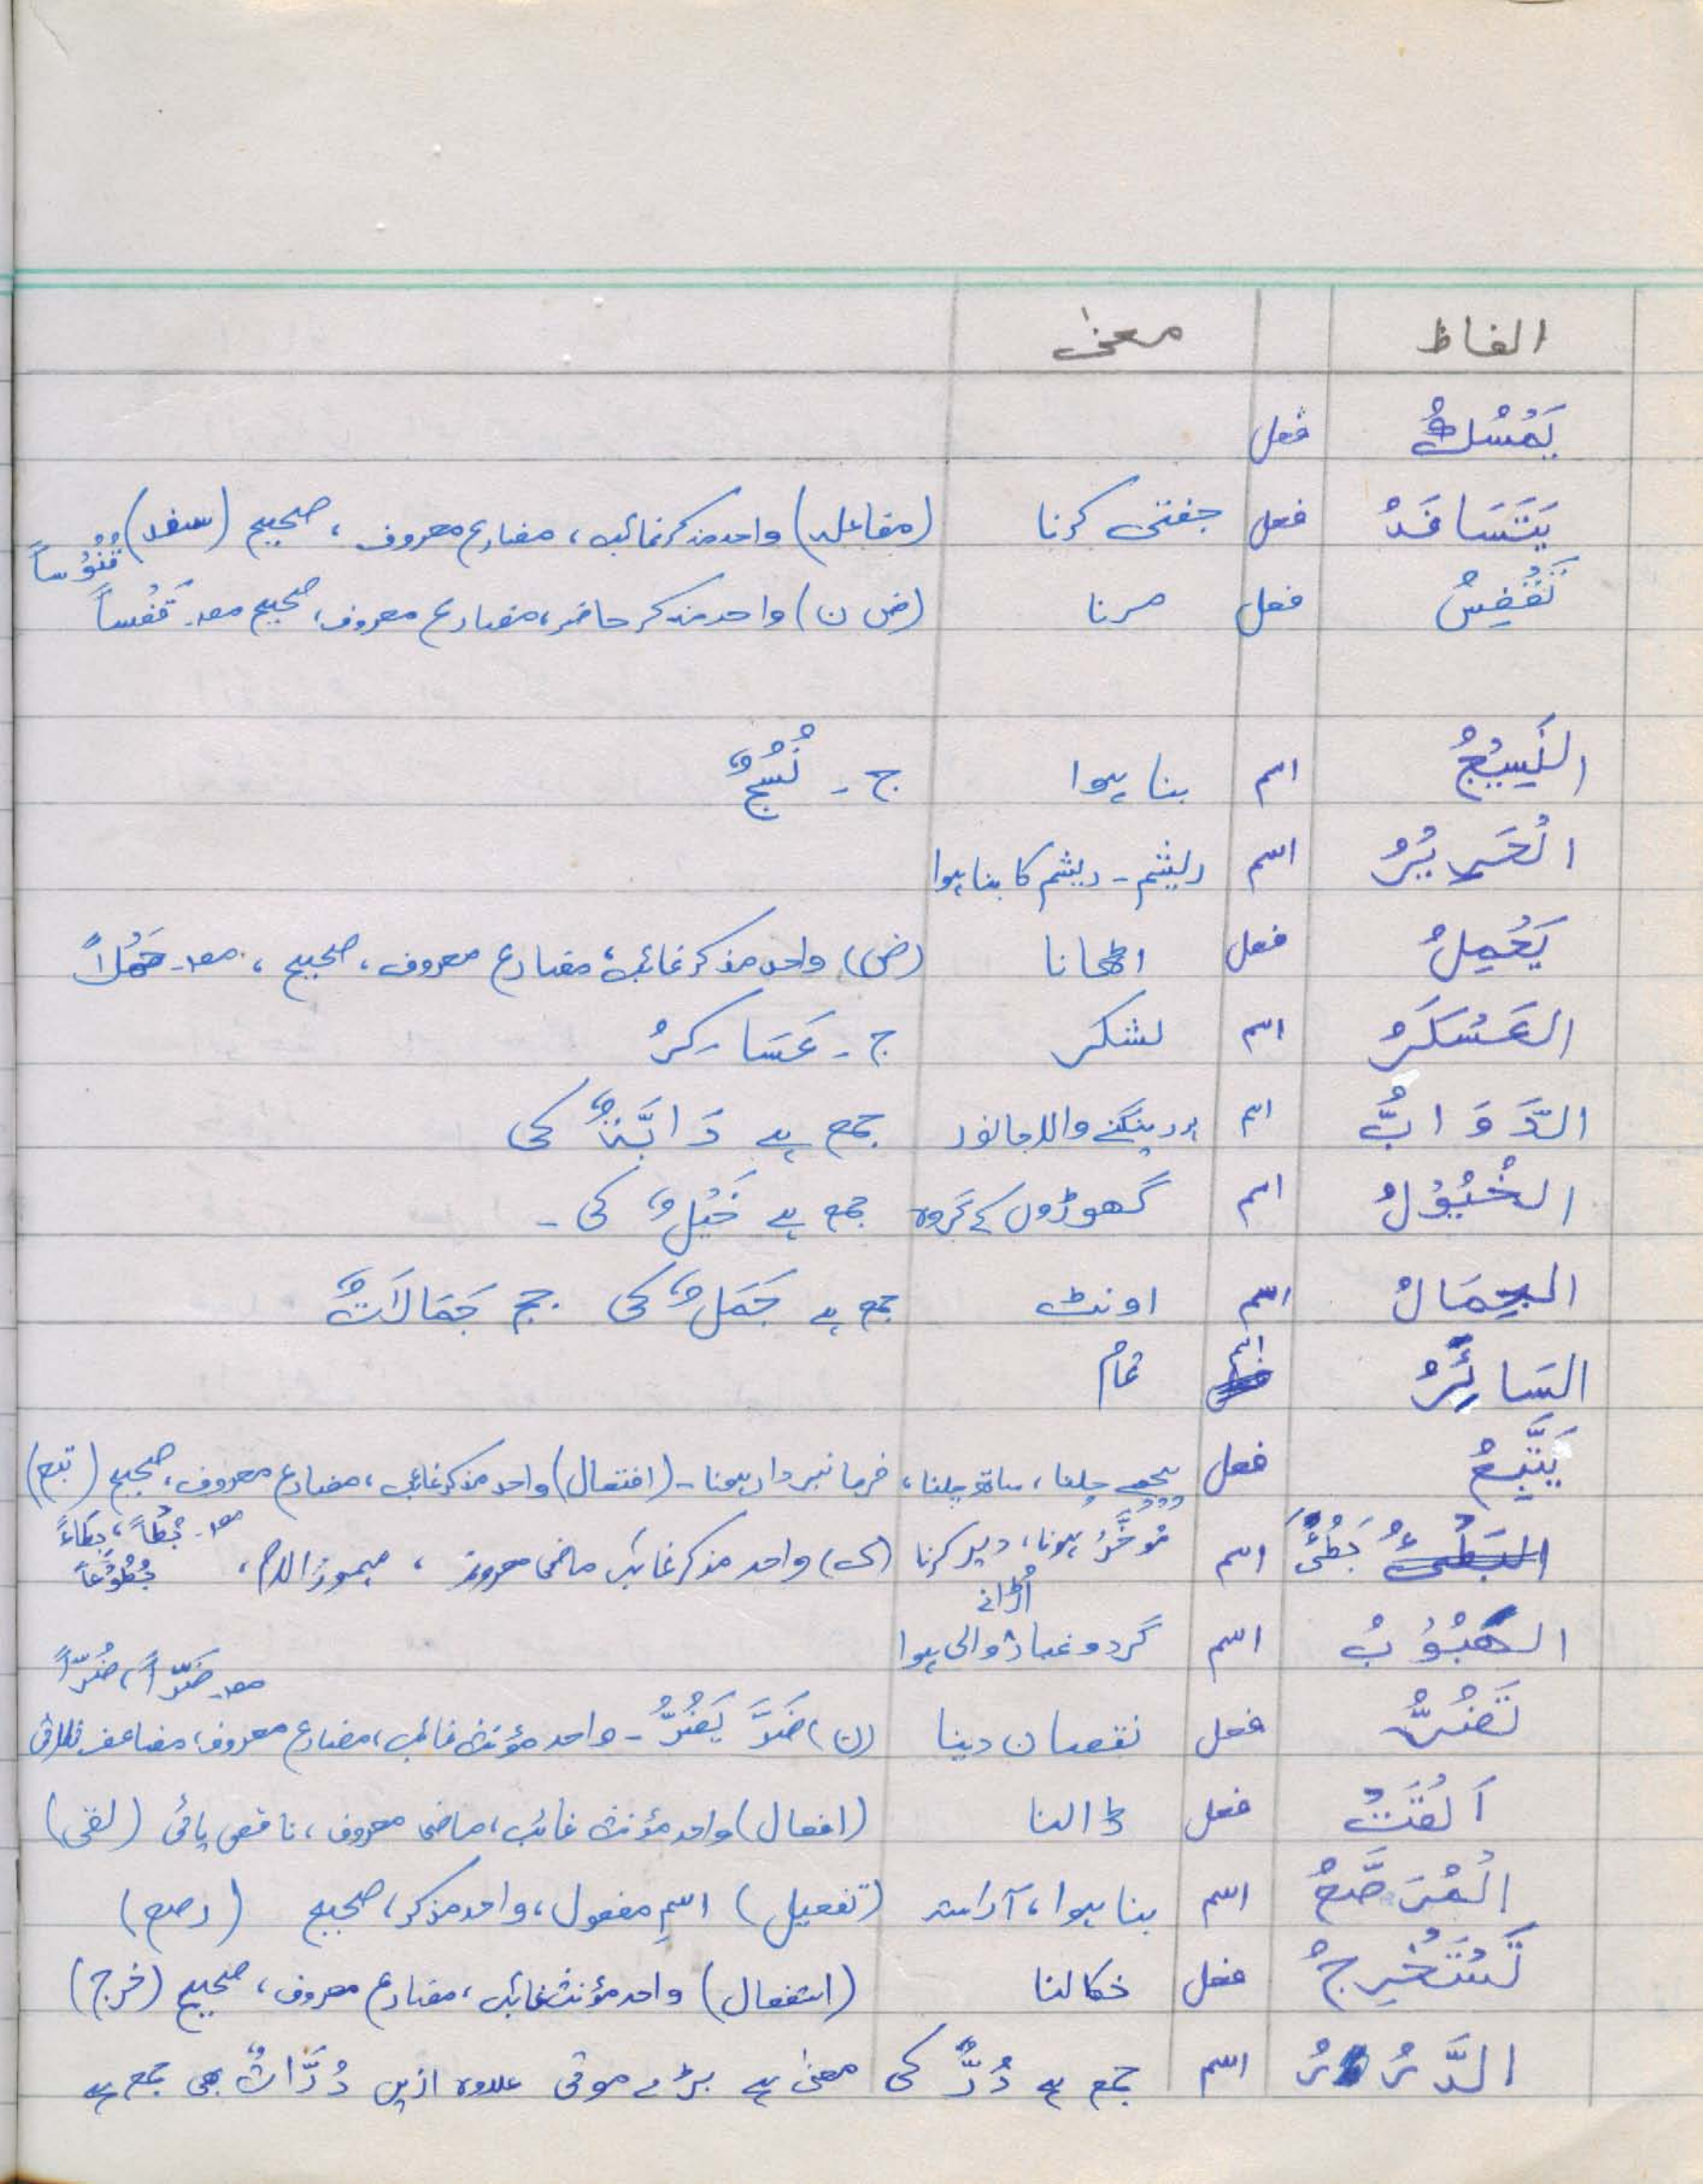 الفاظ معنیٰ
یَمْسُكُ فعل
یَتَسَافَدُ فعل جفتی کرنا (مفاعلہ) واحد مذکر غائب، مضارع معروف، صحیح (سفد)
قُفُوْساً
تَقْفِسُ فعل مرنا (ض ن) واحد مذکر حاضر، مضارع معروف، صحیح مصد۔ قَفْساً
النَسِیْجُ اسم بنا ہوا ج ۔ نُسُجٌ
الْحَرِیْرُ اسم ریشم ۔ ریشم کا بنا ہوا
یَحْمِلُ فعل اٹھانا (ض) واحد مذکر غائب، مضارع معروف، صحیح، مصد۔ حَمْلاً
العَسْكَرُ اسم لشکر ج ۔ عَسَاكِرُ
الدَّوَابُّ اسم ہر رینگنے والا جانور جمع ہے دَابَّۃٌ کی
الخُیُوْلُ اسم گھوڑوں کے گروہ جمع ہے خَیْلٌ کی ۔
الجِمَالُ اسم اونٹ جمع ہے جَمَلٌ کی جج جَمَالَاتٌ
السَائِرُ اسم تمام
یَتَّبِعُ فعل پیچھے چلنا، ساتھ چلنا، فرمانبردار ہونا ۔ (افتعال) واحد مذکر غائب، مضارع معروف، صحیح (تبع)
بَطُئَ اسم مُوَخَّرُ ہونا، دیر کرنا (ک) واحد مذکر غائب ماضی معروف، مہموز اللام، مصد۔ بُطْأً، بِطَاءً
الھَبُوْبُ اسم گرد و غبار اُڑانے والی ہوا
مصد۔ ضَرّاً، ضُرّاً
تَضُرُّ فعل نقصان دینا (ن) ضَرَّ یَضُرُّ ۔ واحد مؤنث غائب، مضارع معروف، مضاعف ثلاثی
اَلْقَتْ فعل ڈالنا (افعال) واحد مؤنث غائب، ماضی معروف، ناقص یائی (لقی)
الْمُرَصَّعُ اسم بنا ہوا، آراستہ (تفعیل) اسمِ مفعول، واحد مذکر، صحیح (رصع)
تَسْتَخْرِجُ فعل نکالنا (استفعال) واحد مؤنث غائب، مضارع معروف، صحیح (خرج)
الدَّرُرُ اسم جمع ہے دُرٌّ کی معنیٰ ہے بڑے موتی علاوہ ازیں دُرَّاتٌ بھی جمع ہے